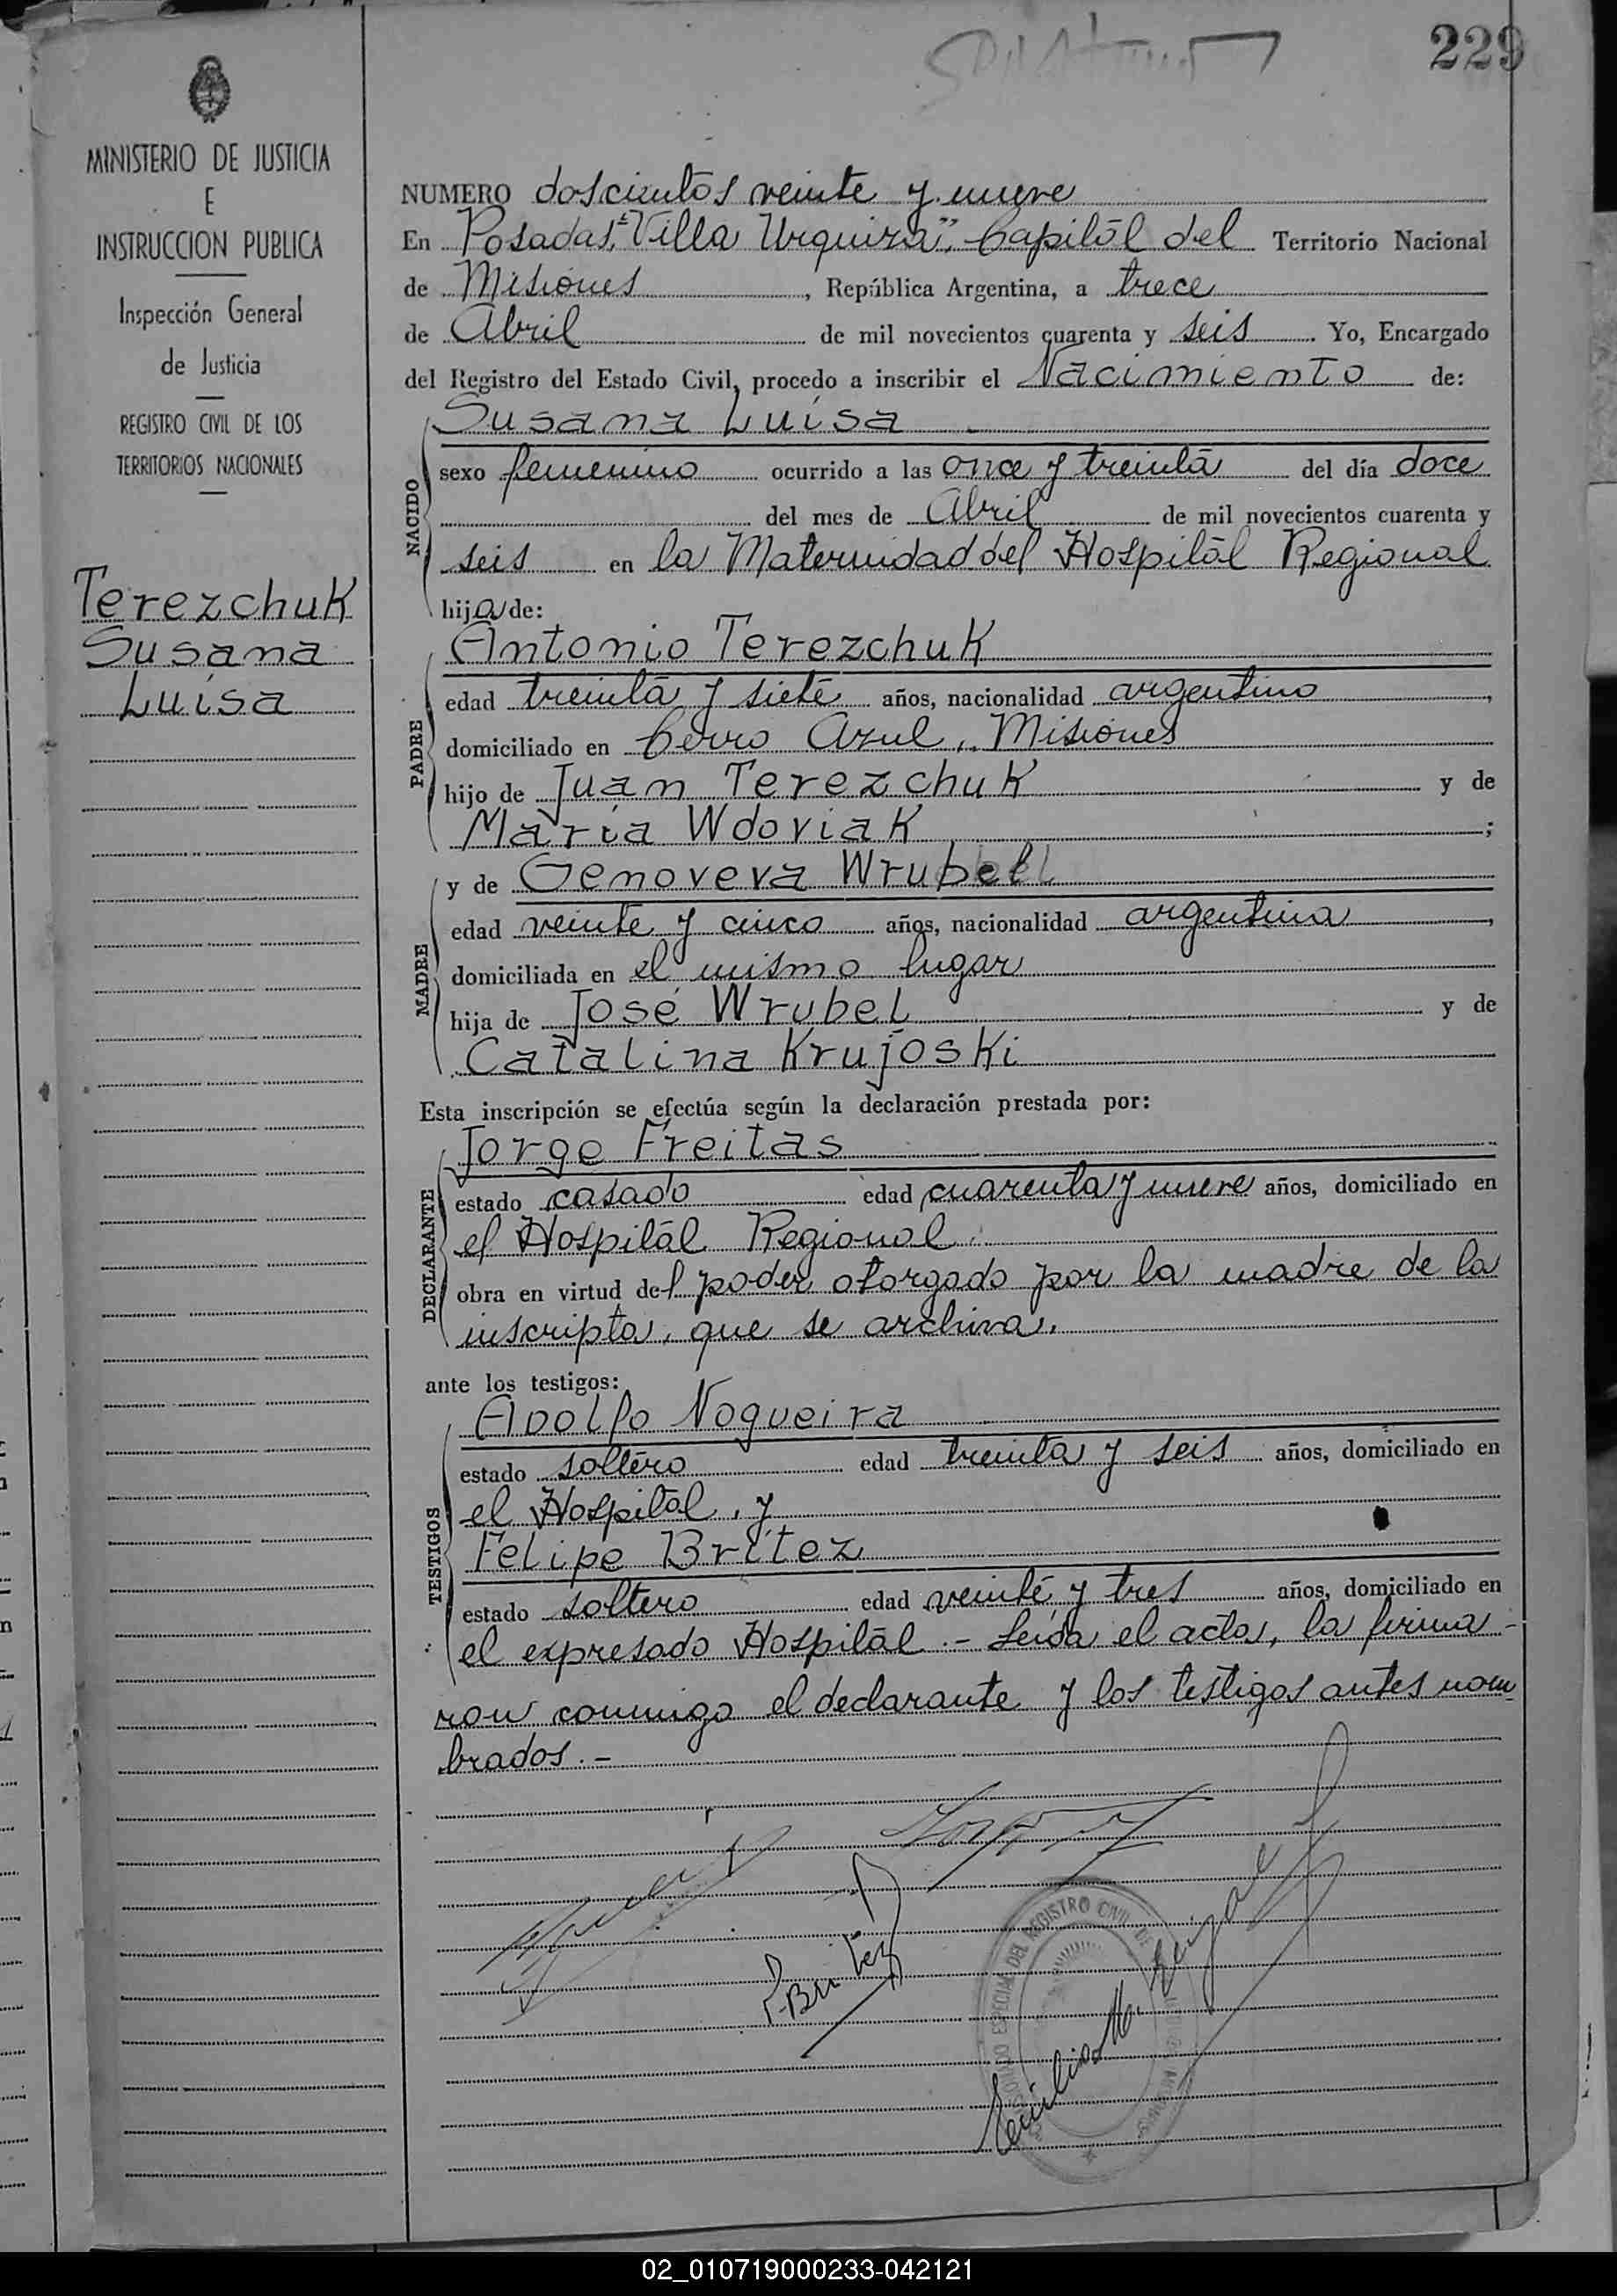 229
MINISTERIO DE JUSTICIA
E
INSTRUCCION PUBLICA
Inspección General
de Justicia
REGISTRO CIVIL DE LOS
TERRITORIOS NACIONALES
Terezchuk
Susana
Luisa
NUMERO doscientos veinte y nueve
En Posadas, "Villa Urquiza", Capital del Territorio Nacional
de Misiones, República Argentina, a trece
de Abril de mil novecientos cuarenta y seis. Yo, Encargado
del Registro del Estado Civil, procedo a inscribir el Nacimiento de:
NACIDO
Susana Luisa
sexo femenino ocurrido a las once y treinta del día doce
del mes de Abril de mil novecientos cuarenta y
seis en la Maternidad del Hospital Regional
hija de:
PADRE
Antonio Terezchuk
edad treinta y siete años, nacionalidad argentino,
domiciliado en Cerro Azul, Misiones
hijo de Juan Terezchuk y de
María Wdoviak;
MADRE
y de Genoveva Wrubel
edad veinte y cinco años, nacionalidad argentina,
domiciliada en el mismo lugar
hija de José Wrubel y de
Catalina Krujoski
Esta inscripción se efectúa según la declaración prestada por:
DECLARANTE
Jorge Freitas
estado casado edad cuarenta y nueve años, domiciliado en
el Hospital Regional.
obra en virtud del poder otorgado por la madre de la
inscripta, que se archiva.
ante los testigos:
TESTIGOS
Adolfo Nogueira
estado soltero edad treinta y seis años, domiciliado en
el Hospital, y
Felipe Britez
estado soltero edad veinte y tres años, domiciliado en
el expresado Hospital.- Leída el acta, la firma-
ron conmigo el declarante y los testigos antes nom
brados.-
Britez
REGISTRO CIVIL
02_010719000233-042121